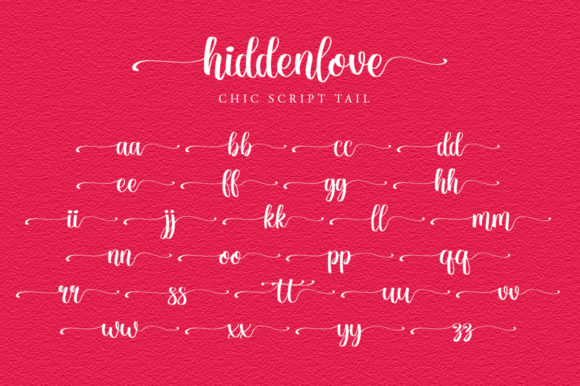 hiddenlove
CHIC SCRIPT TAIL
aa bb cc dd
ee ff gg hh
ii jj kk ll mm
nn oo pp qq
rr ss tt uu vv
ww xx yy zz